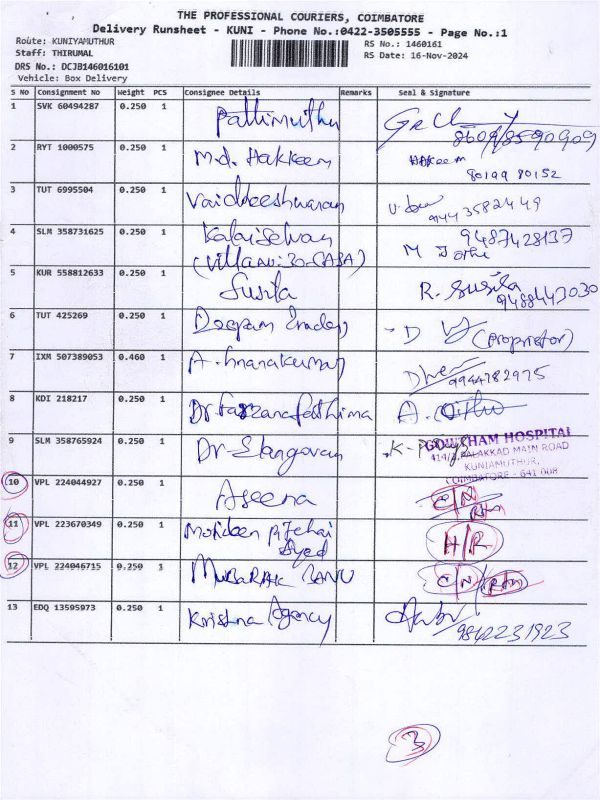 THE PROFESSIONAL COURIERS, COIMBATORE
Delivery Runsheet - KUNI - Phone No.:0422-3505555 - Page No.:1
Route: KUNIYAMUTHUR
Staff: THIRUMAL
DRS No.: DCJB146016101
Vehicle: Box Delivery
RS No.: 1460161
RS Date: 16-Nov-2024
S No Consignment No Weight PCS Consignee Details Remarks Seal & Signature
1 SVK 60494287 0.250 1 Pathimuthu
2 RYT 1000575 0.250 1 M.d. Hakkeem Hakeem
80199 80152
3 TUT 6995504 0.250 1 Vaiddeeshwaran
9443582449
4 SLM 358731625 0.250 1 Kalaiselvan M 9487428137
5 KUR 558812633 0.250 1 Susila R. Susila
9488443030
6 TUT 425269 0.250 1 Deepam (Proprietor)
7 IXM 507389053 0.460 1
9944782975
8 KDI 218217 0.250 1 Dr Farzana Fathima
9 SLM 358765924 0.250 1 Dr. Elangovan
GOWTHAM HOSPITAL
PALAKKAD MAIN ROAD
KUNIAMUTHUR,
COIMBATORE - 641 008
10 VPL 224044927 0.250 1 Aseena C/N
11 VPL 223670349 0.250 1 Mohideen Pitchai H/R
Syed
12 VPL 224046715 0.250 1 MUBARAK BANU C/N
13 EDQ 13595973 0.250 1 Krishna Agency
9842231923
3